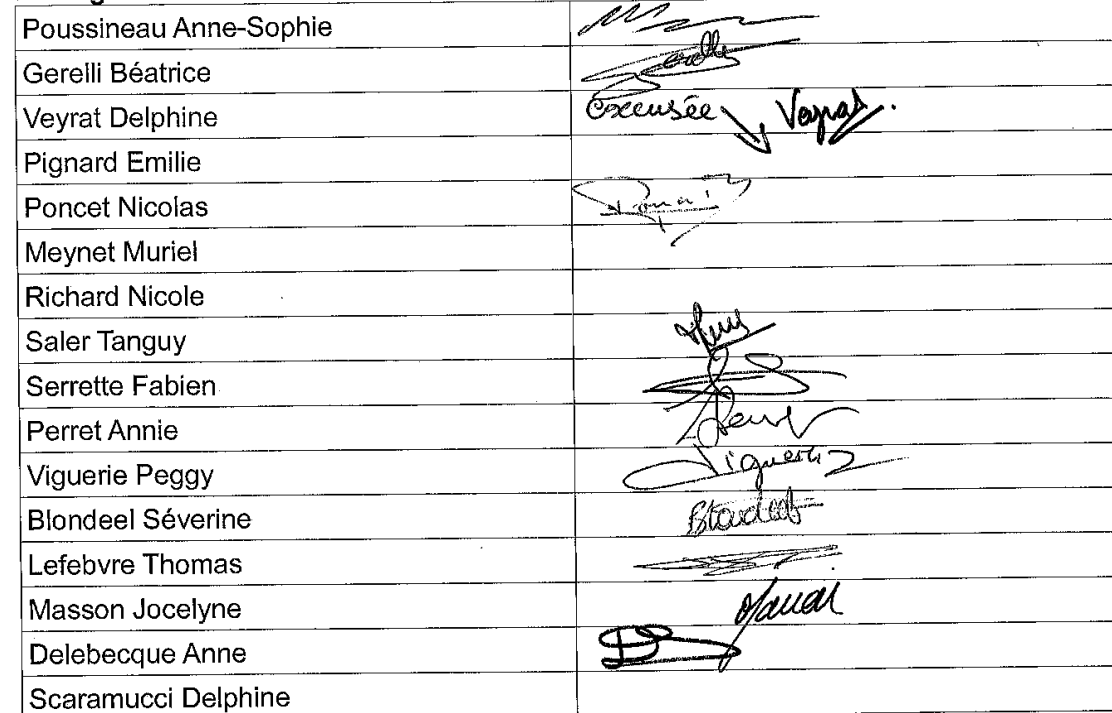 Poussineau Anne-Sophie
Gerelli Béatrice
Veyrat Delphine excusée Veyrat.
Pignard Emilie
Poncet Nicolas
Meynet Muriel
Richard Nicole
Saler Tanguy
Serrette Fabien
Perret Annie
Viguerie Peggy
Blondeel Séverine
Lefebvre Thomas
Masson Jocelyne
Delebecque Anne
Scaramucci Delphine